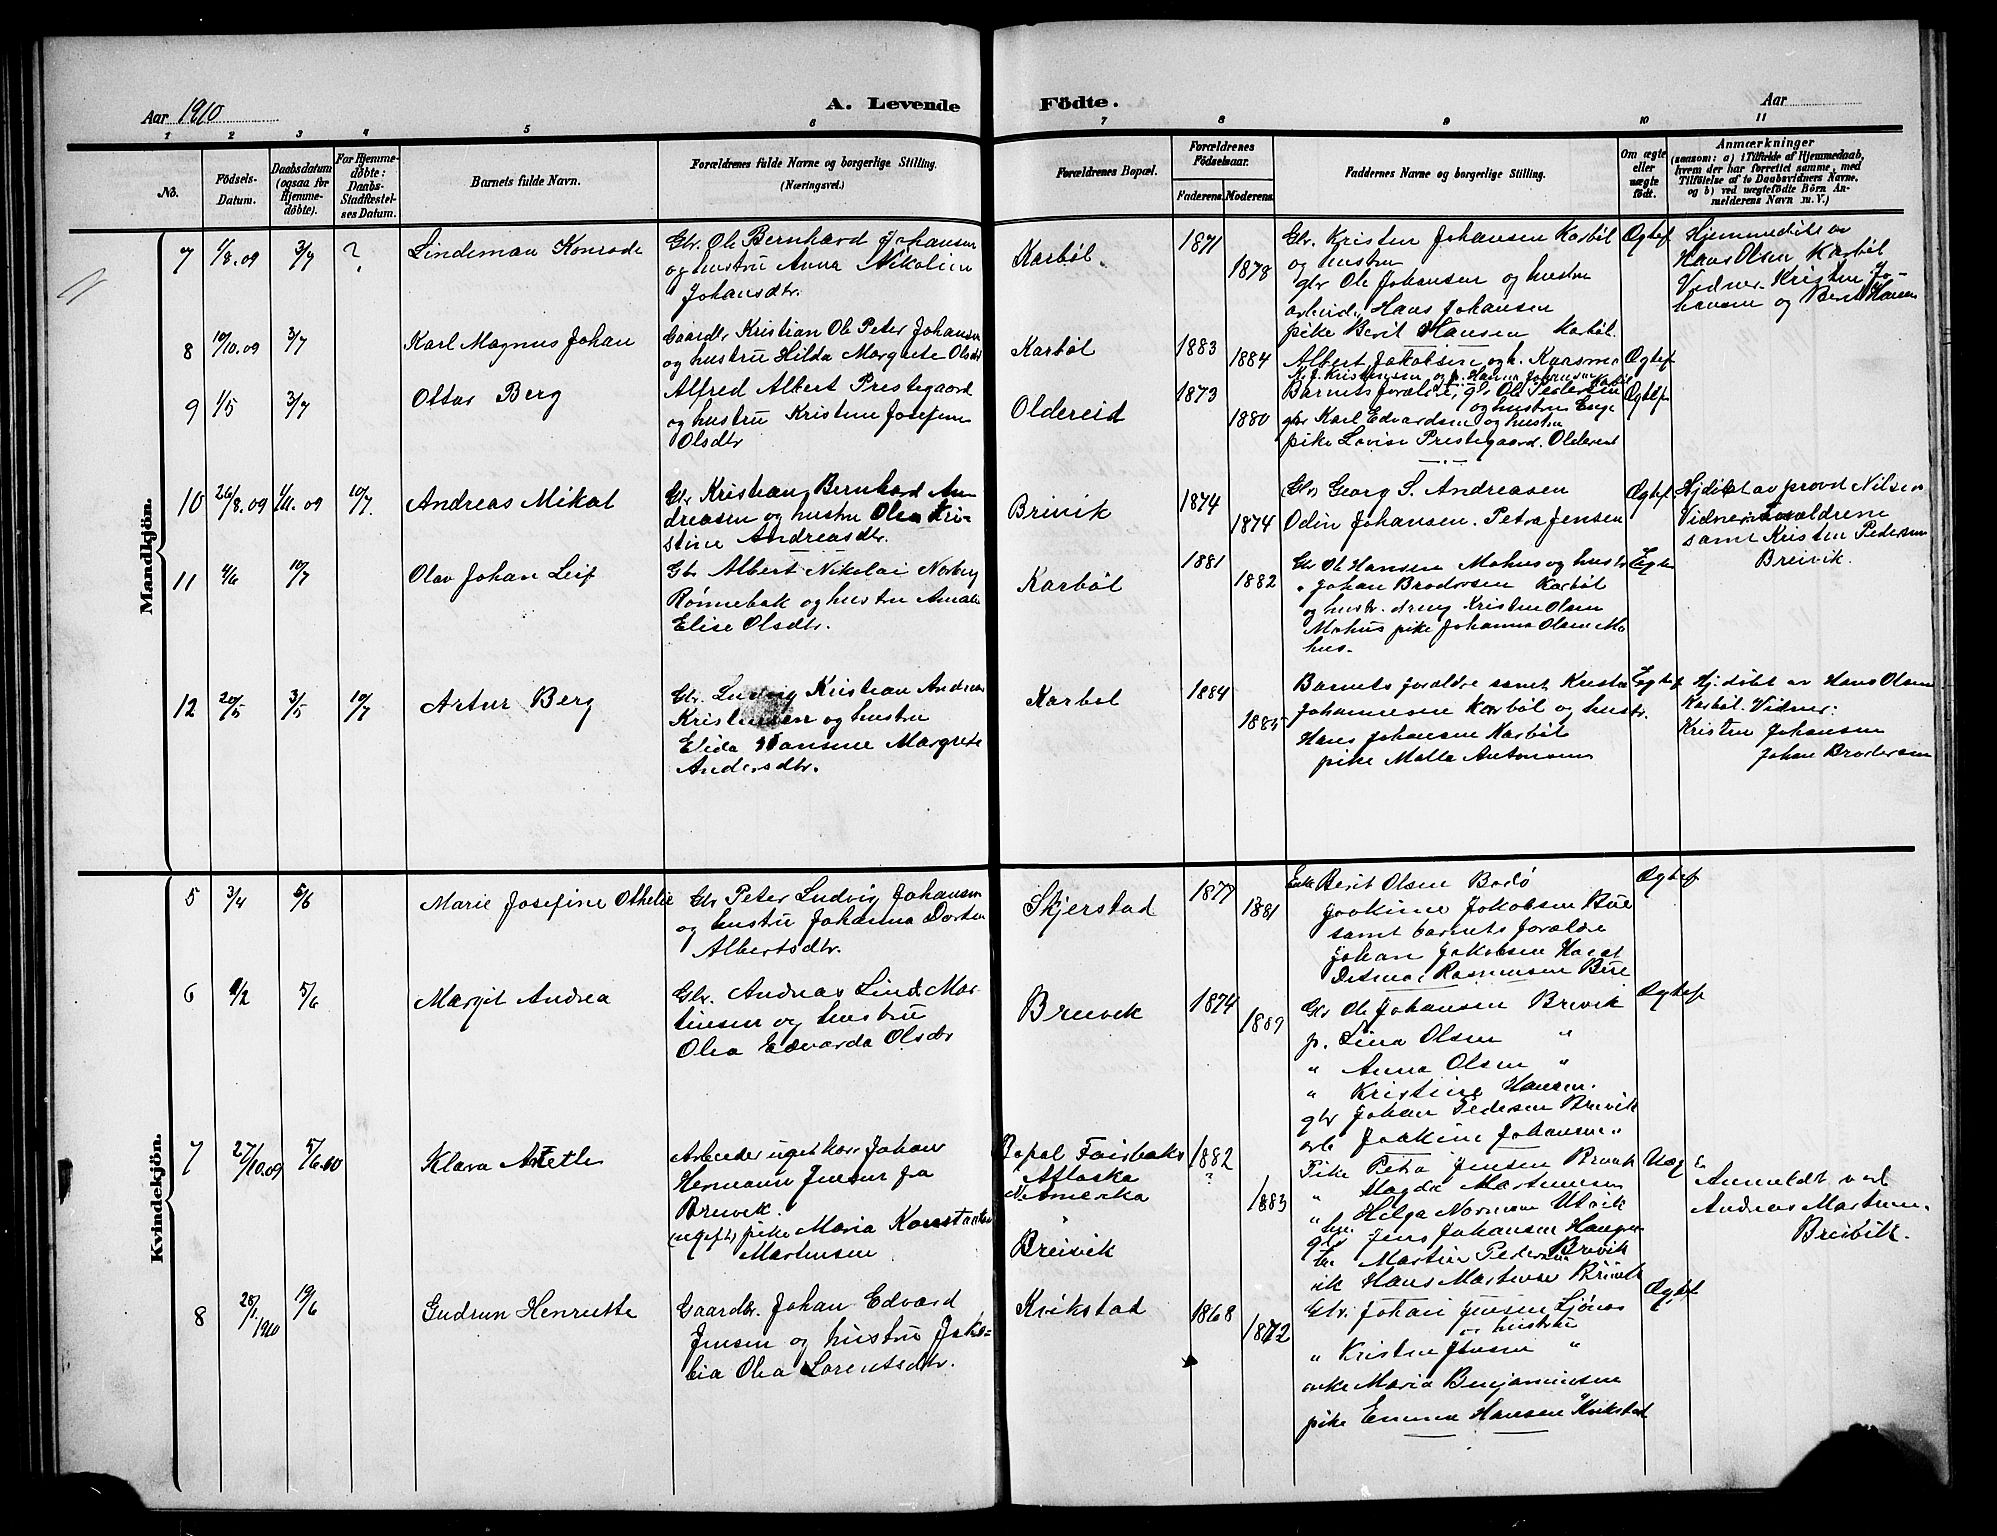 Aar 1910
A. Levende Födte.
Aar
1 2 3 4 5 6 7 8 9 10 11
No.
Födsels-
Datum.
Daabsdatum
(ogsaa for
Hjemme-
döbte).
For Hjemme-
döbte:
Daabs-
Stadfæstel-
ses Datum.
Barnets fulde Navn.
Forældrenes fulde Navne og borgerlige Stilling.
(Næringsvei.)
Forældrenes Bopæl.
Forældrenes
Födselsaar.
Faderens. Moderens.
Faddernes Navne og borgerlige Stilling.
Om ægte
eller
uægte
födt.
Anmærkninger
(saasom: a) i Tilfælde af Hjemmedaab,
hvem der har forrettet samme, med
Tilföielse af to Daabsvidners Navne,
og b) ved uægtefödte Börn An-
melderens Navn m. V.)
Mandkjön.
7 1/8.09 3/7 ? Lindeman Konrade
Gbr. Ole Bernhard Johansen
og hustru Anna Nikoline
Johansdtr.
Karbøl.
1871
1878
Gbr. Kristen Johansen Karbøl
og hustru
gbr Ole Johansen og hustru
arbeid. Hans Johansen
pike Berit Hansen Karbøl.
Ægtef
Hjemmedøbt av
Hans Olsen Karbøl
Vidner. Kristen Jo-
hansen og Berit Hansen
8 10/10.09 3/7 Karl Magnus Johan
Gaardbr Kristian Ole Peter Johansen
og hustru Hilda Margrete Olsdtr
Karbøl
1883
1884
Albert Jakobsen og h. Kaasmo
Ægtef
9 1/5 3/7 Ottar Berg
Alfred Albert Prestegaard
og hustru Kristine Josefine
Olsdtr
Oldereid
1873
1880
Barnets forældre, gbr Ole Pedersen
og hustru
gbr Karl Edvardsen og hustru
pike Lovise Prestegaard. Oldereid
Ægtef
10 26/8.09 1/11.09 10/7. Andreas Mikal
Gbr Kristian Bernhard An-
dreasen og hustru Olea Kri-
stine Andreasdtr.
Breivik
1874
1874
Gbr Georg S. Andreasen
Odin Johansen. Petra Jensen
Ægtef
Hj.døbt av provst Nilsen
Vidner: Forældrene
samt Kristen Pedersen
Breivik.
11 4/6 10/7 Olav Johan Leif
Gbr Albert Nikolai Norberg
Rønnebak og hustru Amalie
Elise Olsdtr.
Karbøl
1881
1882
Gbr Ole Hansen Mohus og hustr
" Johan Brodersen Karbøl
og hustr. dreng Kristen Olsen
Mohus pike Johanna Olsen Mo
hus.
Ægte
12 20/5 3/5 10/7 Artur Berg
Gbr. Ludvig Kristian Andreas
Kristensen og hustru
Elida Hansine Margrete
Andersdtr.
Karbøl
1884
1885
Barnets forældre samt Kristen
Johannesen Karbøl og hustr.
Hans Johansen Karbøl
pike Malla Antonsen
Ægtef
Hj.døbt av Hans Olsen
Karbøl. Vidner:
Kristen Johansen
Johan Brodersen
Kvindekjön.
5 3/4 5/6 Marie Josefine Othelie
Gbr Peter Ludvig Johansen
og hustru Johanna Dortea
Albertsdtr.
Skjerstad
1877
1881
Enke Berit Olsen Bodø
Joakime Jakobsen Bue
samt barnets forældre
Johan Jakobsen
Rasmussen Bue
Ægtef
6 9/2 5/6 Margit Andrea
Gbr. Andreas Lind Mar-
tinsen og hustru
Olea Edvarda Olsdtr
Breivik
1874
1889
Gbr Ole Johansen Breivik
p. Lina Olsen "
" Anna Olsen "
" Kristine Hansen.
gbr Johan Pedersen Breivik
arb Joakim Johansen "
Ægtef
7 27/10.09 5/6.10 Klara Anette
Arbeider ugift kar Johan
Hermann Jensen fra
Breivik.
(ugift) pike Maria Konstance
Martensen
Bopæl Fairbaks
Allaska
N.amerika
Breivik
1882
?
1883
Pike Petra Jensen Breivik
" Magda Martensen
" Helga Norman Utvik
gbr Jens Johansen Haugen
" Martin Pedersen Breivik
Hans Martense Breivik
Uæg
Anmeldt ved
Andreas Martinsen
Breivik.
8 28/1.1910 19/6 Gudrun Henriette
Gaardbr. Johan Edvard
Jensen og hustru Jako-
bia Olea Lorentsdtr.
Kvikstad
1868
1872
Gbr. Johan Jensen Ljönes
og hustru
" Kristen Jensen "
enke Maria Benjaminsen
pike Emma Hansen Kvikstad
Ægtef